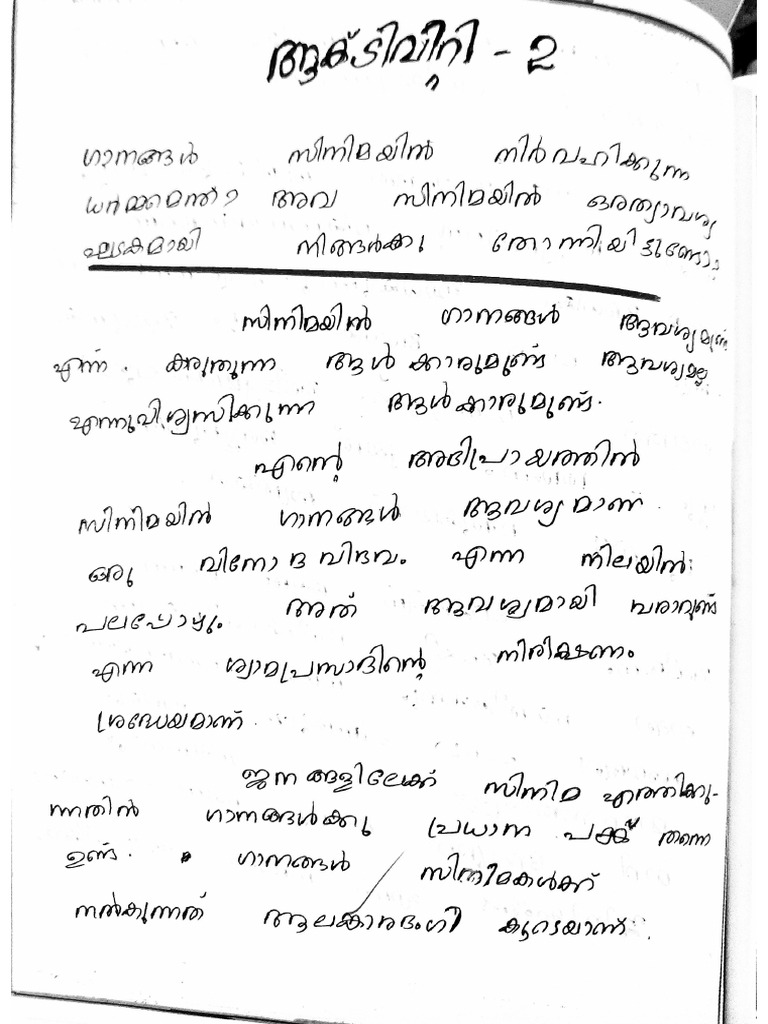 ആക്ടിവിറ്റി - 2
ഗാനങ്ങൾ സിനിമയിൽ നിർവഹിക്കുന്ന
ധർമ്മമെന്ത്? അവ സിനിമയിൽ ഒരത്യാവശ്യ
ഘടകമായി നിങ്ങൾക്കു തോന്നിയിട്ടുണ്ടോ?
സിനിമയിൽ ഗാനങ്ങൾ ആവശ്യമുണ്ട്
എന്ന് കരുതുന്ന ആൾക്കാരുമുണ്ട് ആവശ്യമല്ല
എന്നുവിശ്വസിക്കുന്ന ആൾക്കാരുമുണ്ട്.
എന്റെ അഭിപ്രായത്തിൽ
സിനിമയിൽ ഗാനങ്ങൾ ആവശ്യമാണ്
ഒരു വിനോദവിഭവം എന്ന നിലയിൽ
പലപ്പോഴും അത് ആവശ്യമായി വരാറുണ്ട്
എന്ന ശ്യാമപ്രസാദിന്റെ നിരീക്ഷണം
ശ്രദ്ധേയമാണ്.
ജനങ്ങളിലേക്ക് സിനിമ എത്തിക്കു-
ന്നതിൽ ഗാനങ്ങൾക്കു പ്രധാന പങ്ക് തന്നെ
ഉണ്ട്. ഗാനങ്ങൾ സിനിമകൾക്ക്
നൽകുന്നത് ആലങ്കാരഭംഗി കൂടെയാണ്.